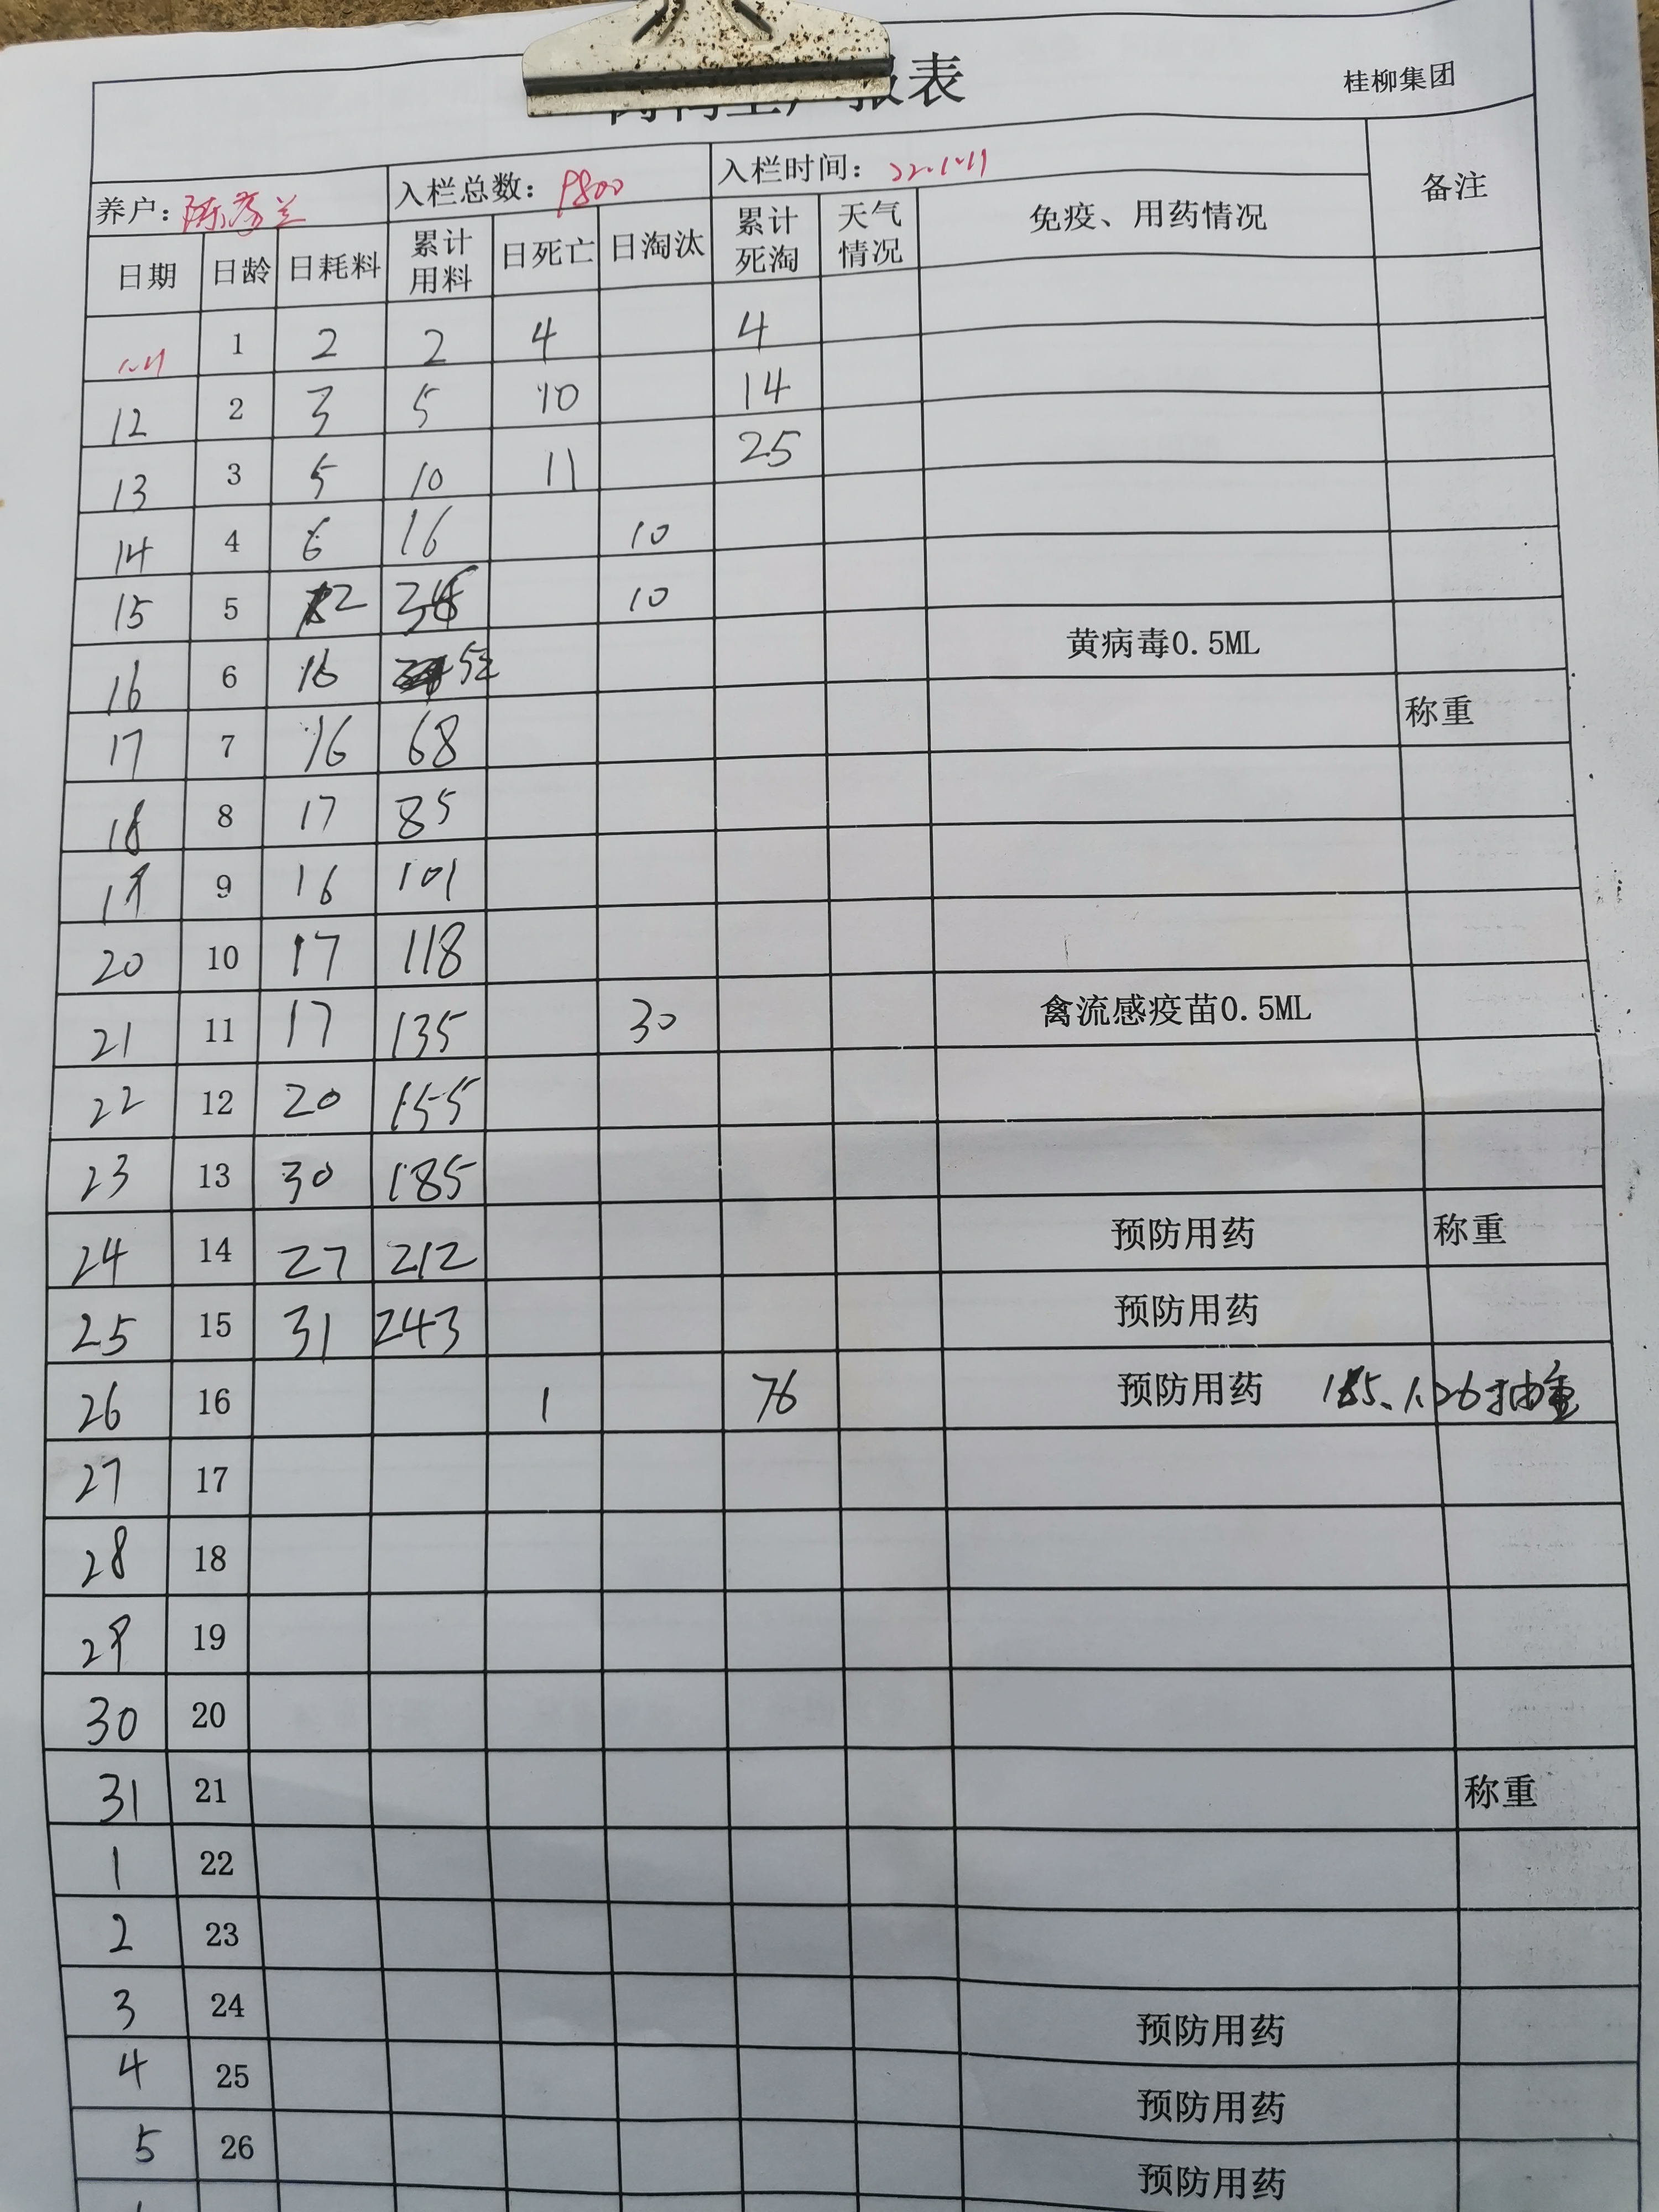 报表
桂柳集团
养户： 入栏总数：9800 入栏时间：22.1.11 备注
日期 日龄 日耗料 累计用料 日死亡 日淘汰 累计死淘 天气情况 免疫、用药情况
1.11 1 2 2 4 4
12 2 3 5 10 14
13 3 5 10 11 25
14 4 6 16 10
15 5 10
16 6 16 52 黄病毒0.5ML
17 7 16 68 称重
18 8 17 85
19 9 16 101
20 10 17 118
21 11 17 135 30 禽流感疫苗0.5ML
22 12 20 155
23 13 30 185
24 14 27 212 预防用药 称重
25 15 31 243 预防用药
26 16 1 76 预防用药 185、1.26抽重
27 17
28 18
29 19
30 20
31 21 称重
1 22
2 23
3 24 预防用药
4 25 预防用药
5 26 预防用药